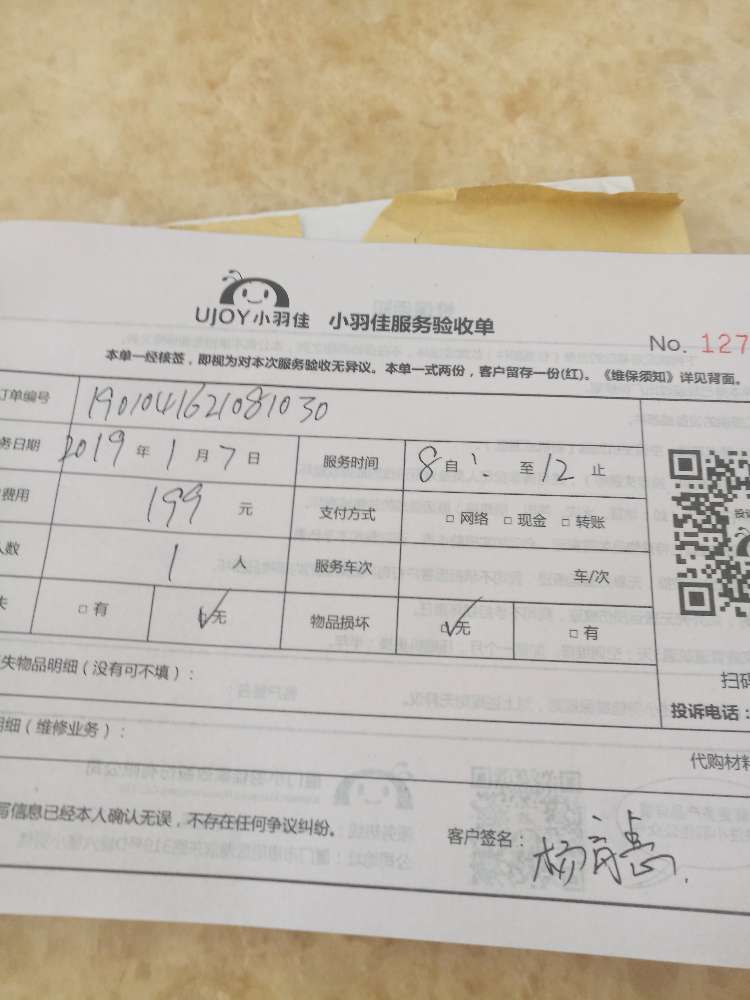 UJOY小羽佳 小羽佳服务验收单
No. 127
本单一经核签，即视为对本次服务验收无异议。本单一式两份，客户留存一份(红)。《维保须知》详见背面。
订单编号 1901041621081030
务日期 2019 年 1 月 7 日 服务时间 8 自 : 至 12 止
费用 199 元 支付方式 □ 网络 □ 现金 □ 转账
人数 1 人 服务车次 车/次
失 □ 有 ☑ 无 物品损坏 ☑ 无 □ 有
失物品明细（没有可不填）：
扫码
投诉电话：
明细（维修业务）：
代购材料
写信息已经本人确认无误，不存在任何争议纠纷。
客户签名：杨